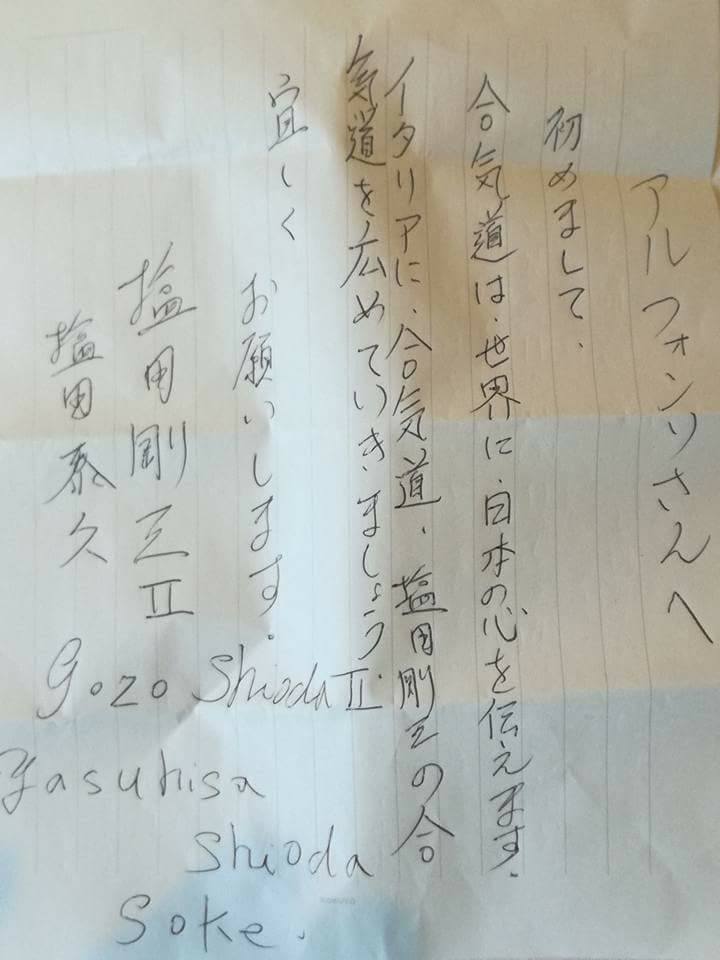 アルフォンソさんへ
初めまして、
合気道は、世界に、日本の心を伝えます.
イタリアに、合気道、塩田剛三の合
気道を広めていきましょう.
宜しく
お願いします.
塩田剛三 II
塩田泰久
Gozo Shioda II.
Yasuhisa
Shioda
Soke.
KOKUYO